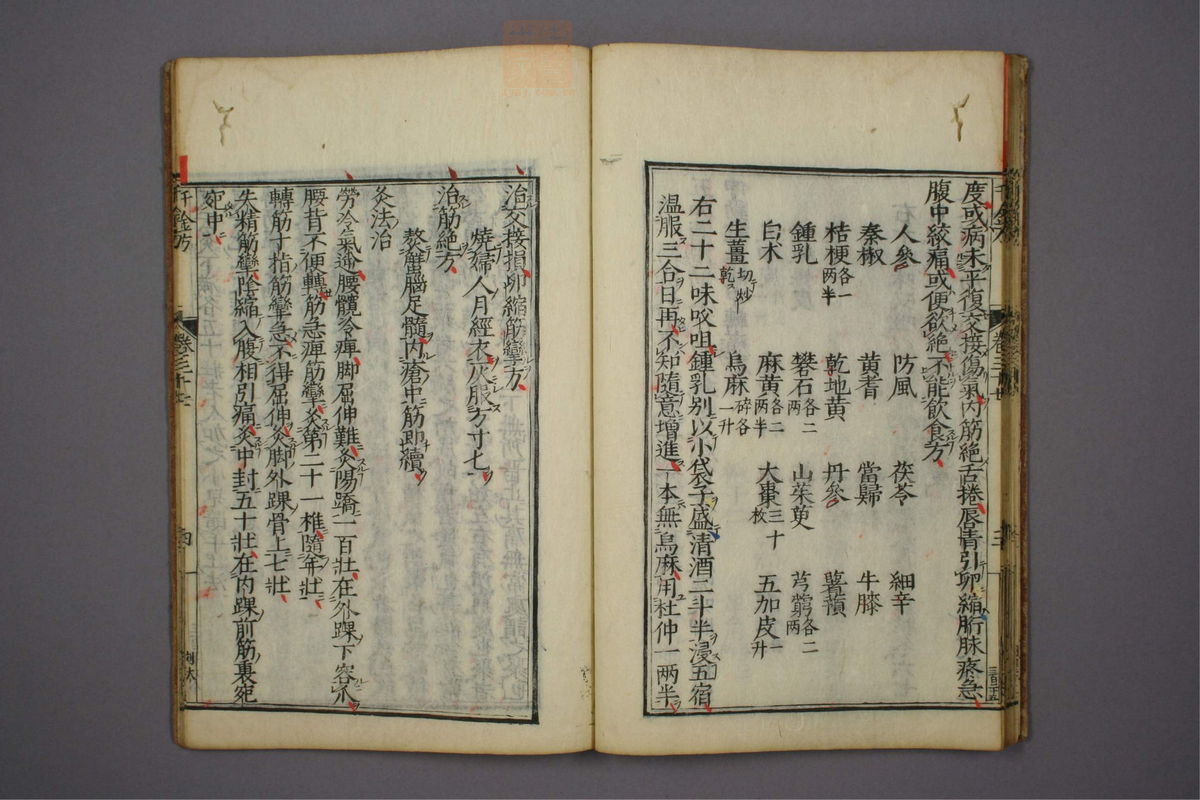 度或病未平復交接傷氣内筋絶舌捲唇青引卵縮䯒脉疼急
腹中絞痛或便欲絶不能飲食方
人參 防風 茯苓 細辛
秦椒 黄耆 當歸 牛膝
桔梗各一两半 乾地黄 丹參 薯蕷
鍾乳 礬石各二两 山茱萸 芎藭各二两
白术 麻黄各二两半 大棗三十枚 五加皮一升
生薑切炒乾 烏麻碎各一升
右二十二味㕮咀鍾乳别以小袋子盛清酒二斗半浸五宿
温服三合日再不知隨意增進一本無烏麻用杜仲一两半
治交接損卵縮筋攣方
燒婦人月經衣灰服方寸七
治筋絶方
熬蟹腦足髓内瘡中筋即續
灸法治
勞冷氣逆腰髖冷痺脚屈伸難灸陽蹻一百壮在外踝下容爪
腰背不便轉筋急痺筋攣灸第二十一椎隨年壮
轉筋十指筋攣急不得屈伸灸脚外踝骨上七壮
失精筋攣陰縮入腹相引痛灸中封五十壮在内踝前筋裏宛
宛中
千金方
卷三十七
四